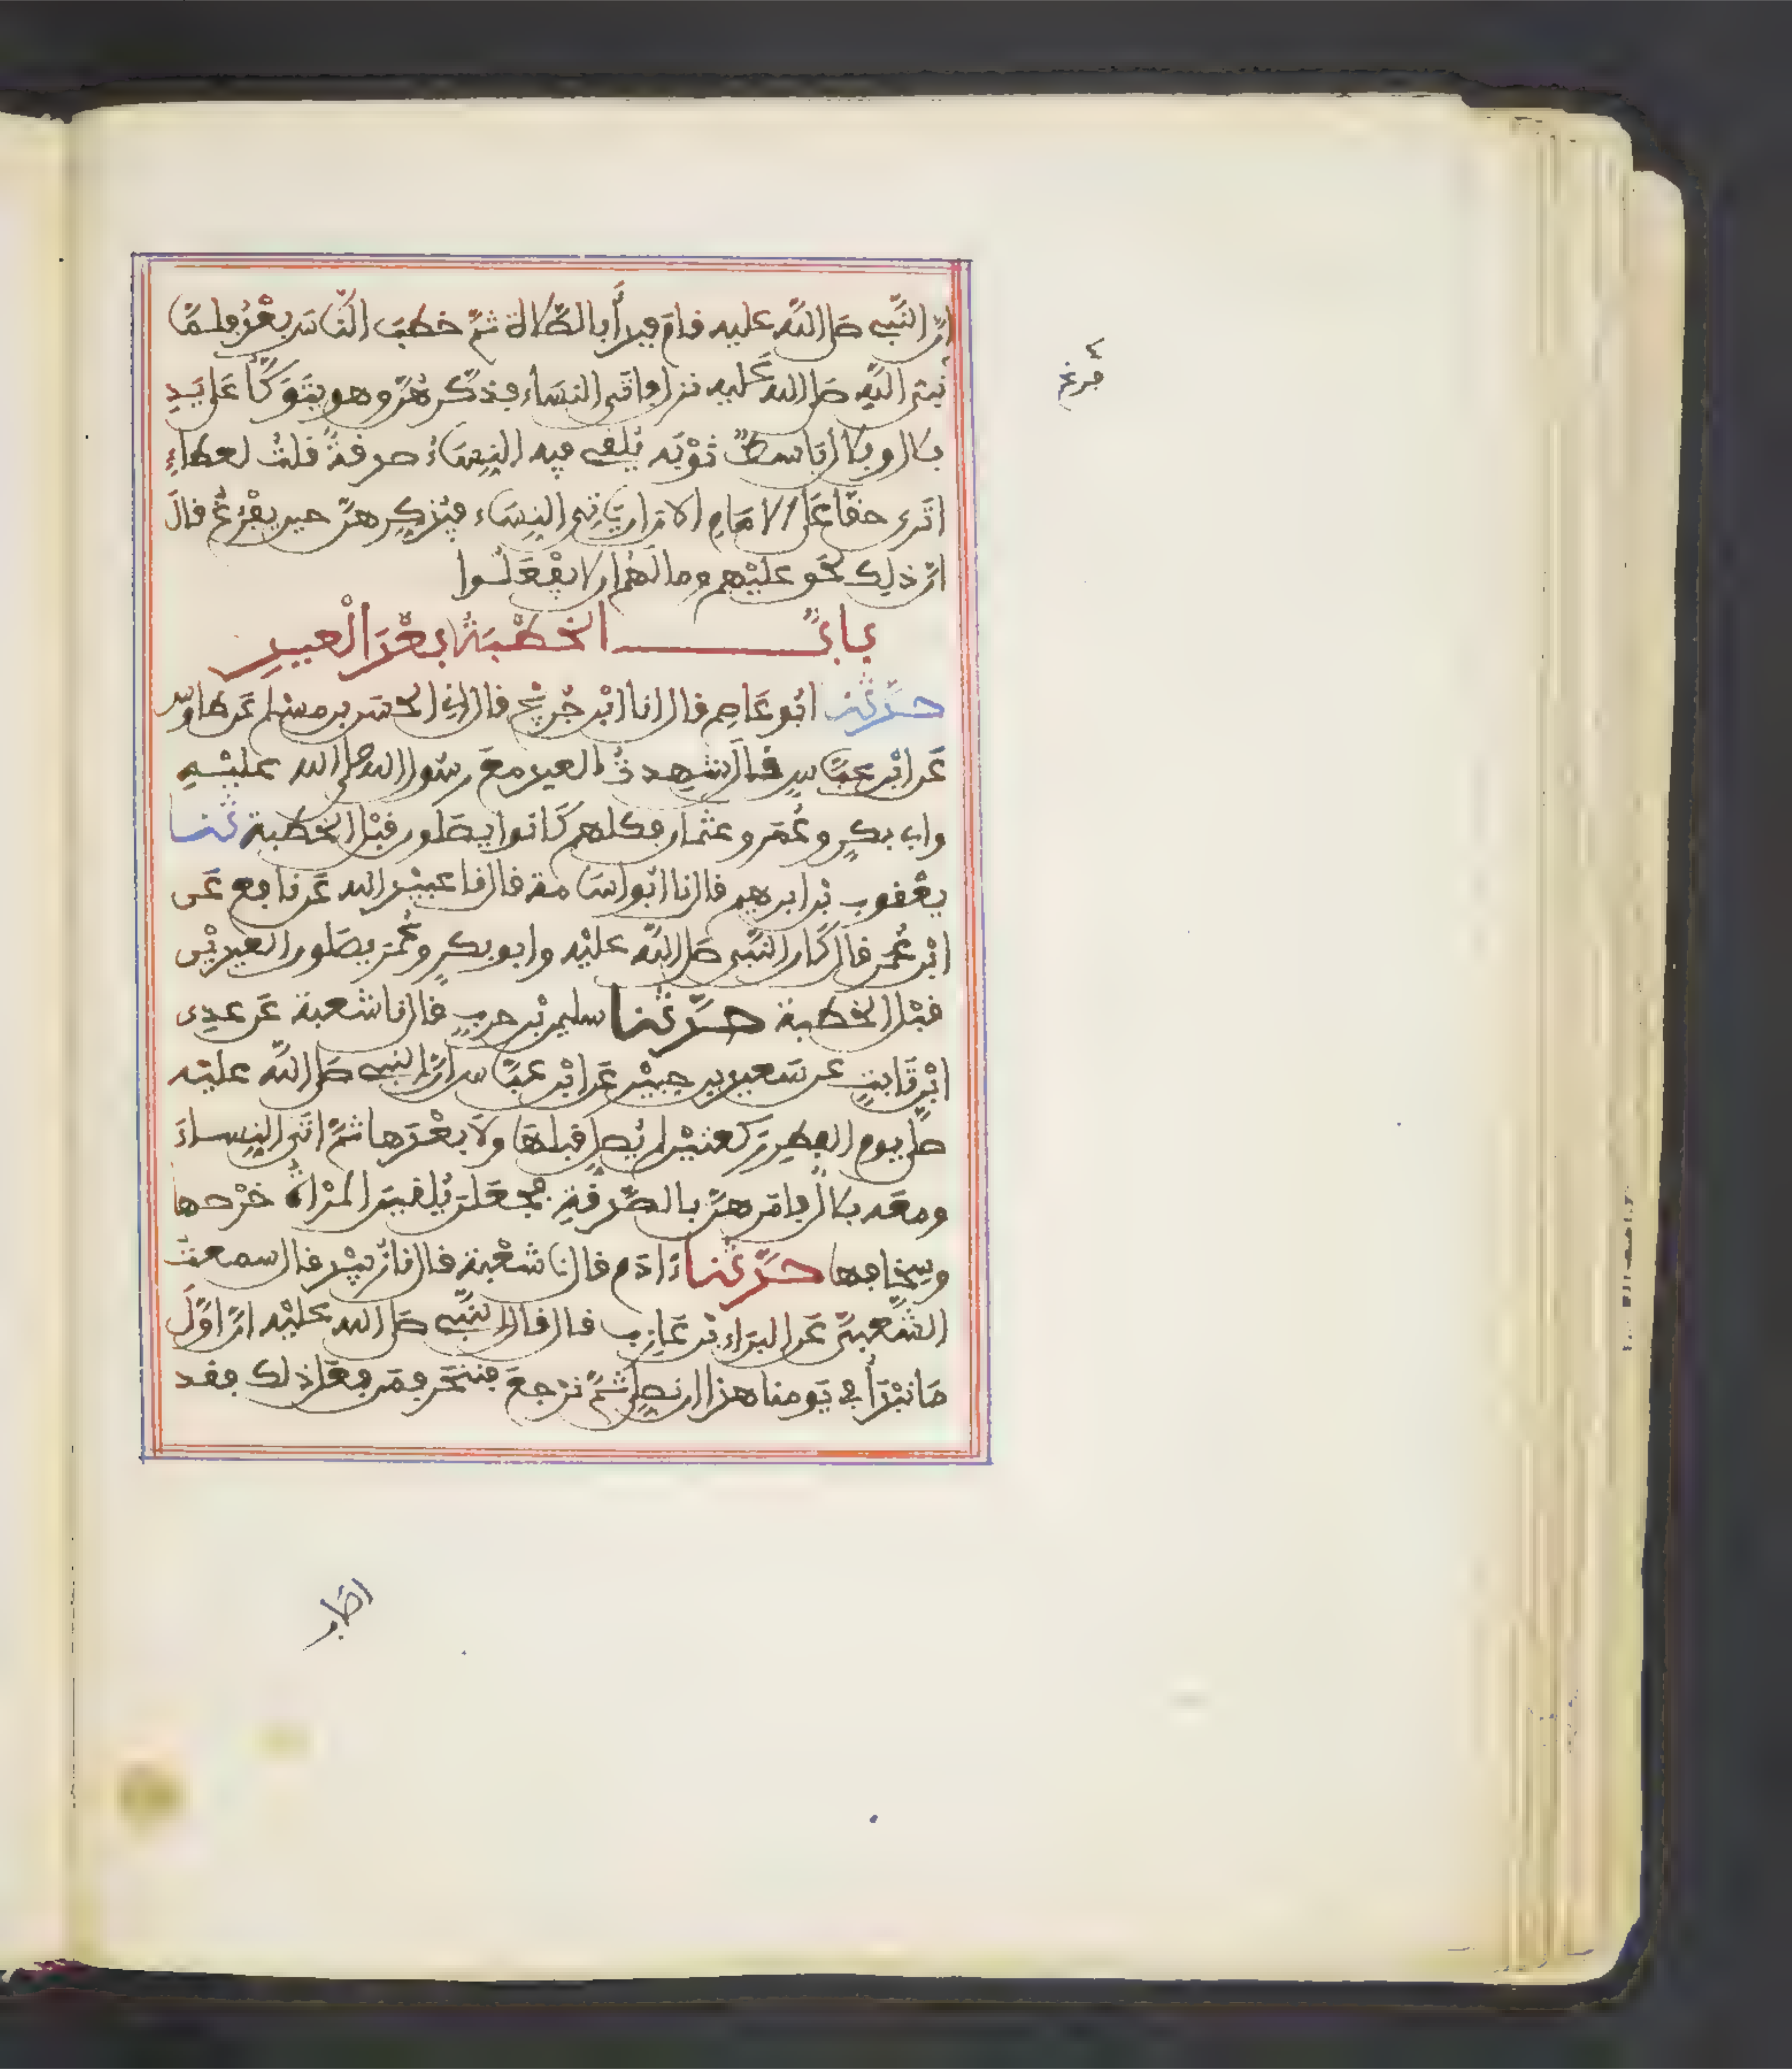 انّ النّبى صلى اللّه عليه قام فبدأ بالصّلاة ثمّ خطبَ النّاسَ بعْدُ فلمّا
نبى اللّه صلى اللّه عليه نزل فاتى النسَاء فذكّرهُنّ وهو يتَوَكّأ على يَدِ
بلال وبلال باسطٌ ثوْبَه يُلقى فيه النِسَاءُ صدقةً قلتُ لعطاءٍ
اتَرى حقّا عَلى الامَامِ الان ان يَاتى النِسَاء فيُذكِّرهنّ حين يفْرُغُ قالَ
انّ ذلِك لحَق عليْهم وما لَهُم ان لا يفْعَلُوا
بابُ الخطْبَةُ بعْدَ الْعيدِ
حدّثنا ابُو عَاصِم قال انا ابْن جُريْج قال انى الحسَن بن مسْلم عَن طاوس
عَن ابْن عبّاسٍ قالَ شهِدتُ العيد معَ رسُول الله صلى الله عليْهِ
وابى بكرٍ وعُمَر وعثمان فكلهم كَانوا يصَلون قبْل الخطبة ثنا
يعْقوب بْن ابرهيم قال نا ابُو اسَامة قال نا عبيْد الله عَن نافع عَن
ابْن عُمَر قال كَان النّبى صَلى اللّه عليْه وابو بكرٍ وعُمَر يصَلون العيديْن
قبْل الخطبة حدّثنا سليمٰن بْن حربٍ قال نا شعبة عَن عدِى
ابْن ثَابتٍ عن سَعيد بن جبيْر عَن ابْن عبّاس انّ النبى صَلى اللّه عليْه
صلّى يوم الفطرِ رَكعتيْن لم يُصلِ قبلهَا ولا بعْدَها ثمّ اتَى النِساءَ
ومعَه بلالٌ فامَرهنّ بالصّدقةِ فجعَلن يُلقينَ المرْاةُ خرْصها
وسِخابها حدّثنا ءادَم قال نا شعْبة قال نا زبيْد قال سمعتُ
الشّعبىّ عَن البرَاء بْن عَازِب قال قال النّبى صَلى الله عليْه انّ اوّلَ
مَا نبْدَأ فى يَومنا هذا ان نصلِى ثمّ نرْجعَ فننحَر فمَن فعَل ذلك فقد
فرغ
اصَاب